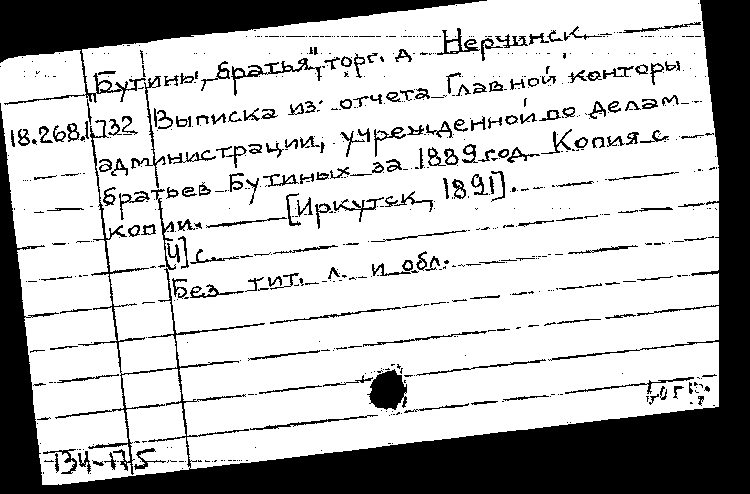 „Бутины, братья", торг. д. Нерчинск.
18.268.1.732 Выписка из отчета Главной конторы
администрации, учрежденной по делам
братьев Бутиных за 1889 год. Копия с
копии. [Иркутск, 1891].
[4] с.
Без тит. л. и обл.
134-175